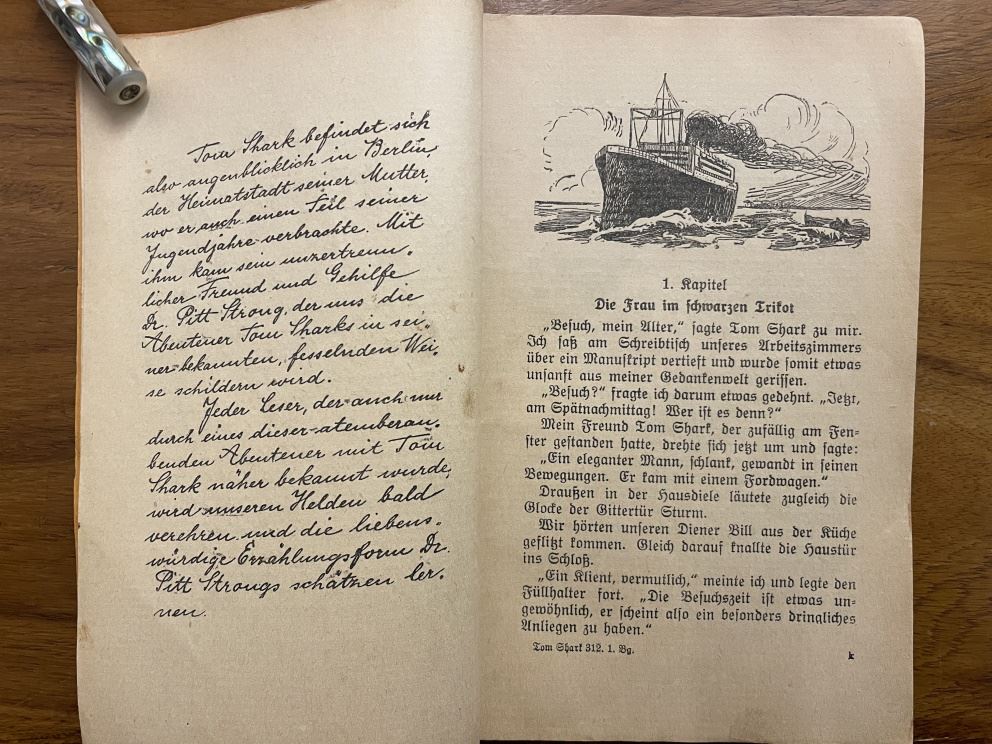 Tom Shark befindet sich
also augenblicklich in Berlin,
der Heimatstadt seiner Mutter,
wo er auch einen Teil seiner
Jugendjahre verbrachte. Mit
ihm kam sein unzertrenn-
licher Freund und Gehilfe
Dr. Pitt Strong, der uns die
Abenteuer Tom Sharks in sei-
ner bekannten, fesselnden Wei-
se schildern wird.
Jeder Leser, der auch nur
durch eines dieser atemberau-
benden Abenteuer mit Tom
Shark näher bekannt wurde,
wird unseren Helden bald
verehren und die liebens-
würdige Erzählungsform Dr.
Pitt Strongs schätzen ler-
nen.
1. Kapitel
Die Frau im schwarzen Trikot
„Besuch, mein Alter,“ sagte Tom Shark zu mir.
Ich saß am Schreibtisch unseres Arbeitszimmers
über ein Manuskript vertieft und wurde somit etwas
unsanft aus meiner Gedankenwelt gerissen.
„Besuch?“ fragte ich darum etwas gedehnt. „Jetzt,
am Spätnachmittag! Wer ist es denn?“
Mein Freund Tom Shark, der zufällig am Fen-
ster gestanden hatte, drehte sich jetzt um und sagte:
„Ein eleganter Mann, schlank, gewandt in seinen
Bewegungen. Er kam mit einem Fordwagen.“
Draußen in der Hausdiele läutete zugleich die
Glocke der Gittertür Sturm.
Wir hörten unseren Diener Bill aus der Küche
geflitzt kommen. Gleich darauf knallte die Haustür
ins Schloß.
„Ein Klient, vermutlich,“ meinte ich und legte den
Füllhalter fort. „Die Besuchszeit ist etwas un-
gewöhnlich, er scheint also ein besonders dringliches
Anliegen zu haben.“
Tom Shark 312. 1. Bg.
k